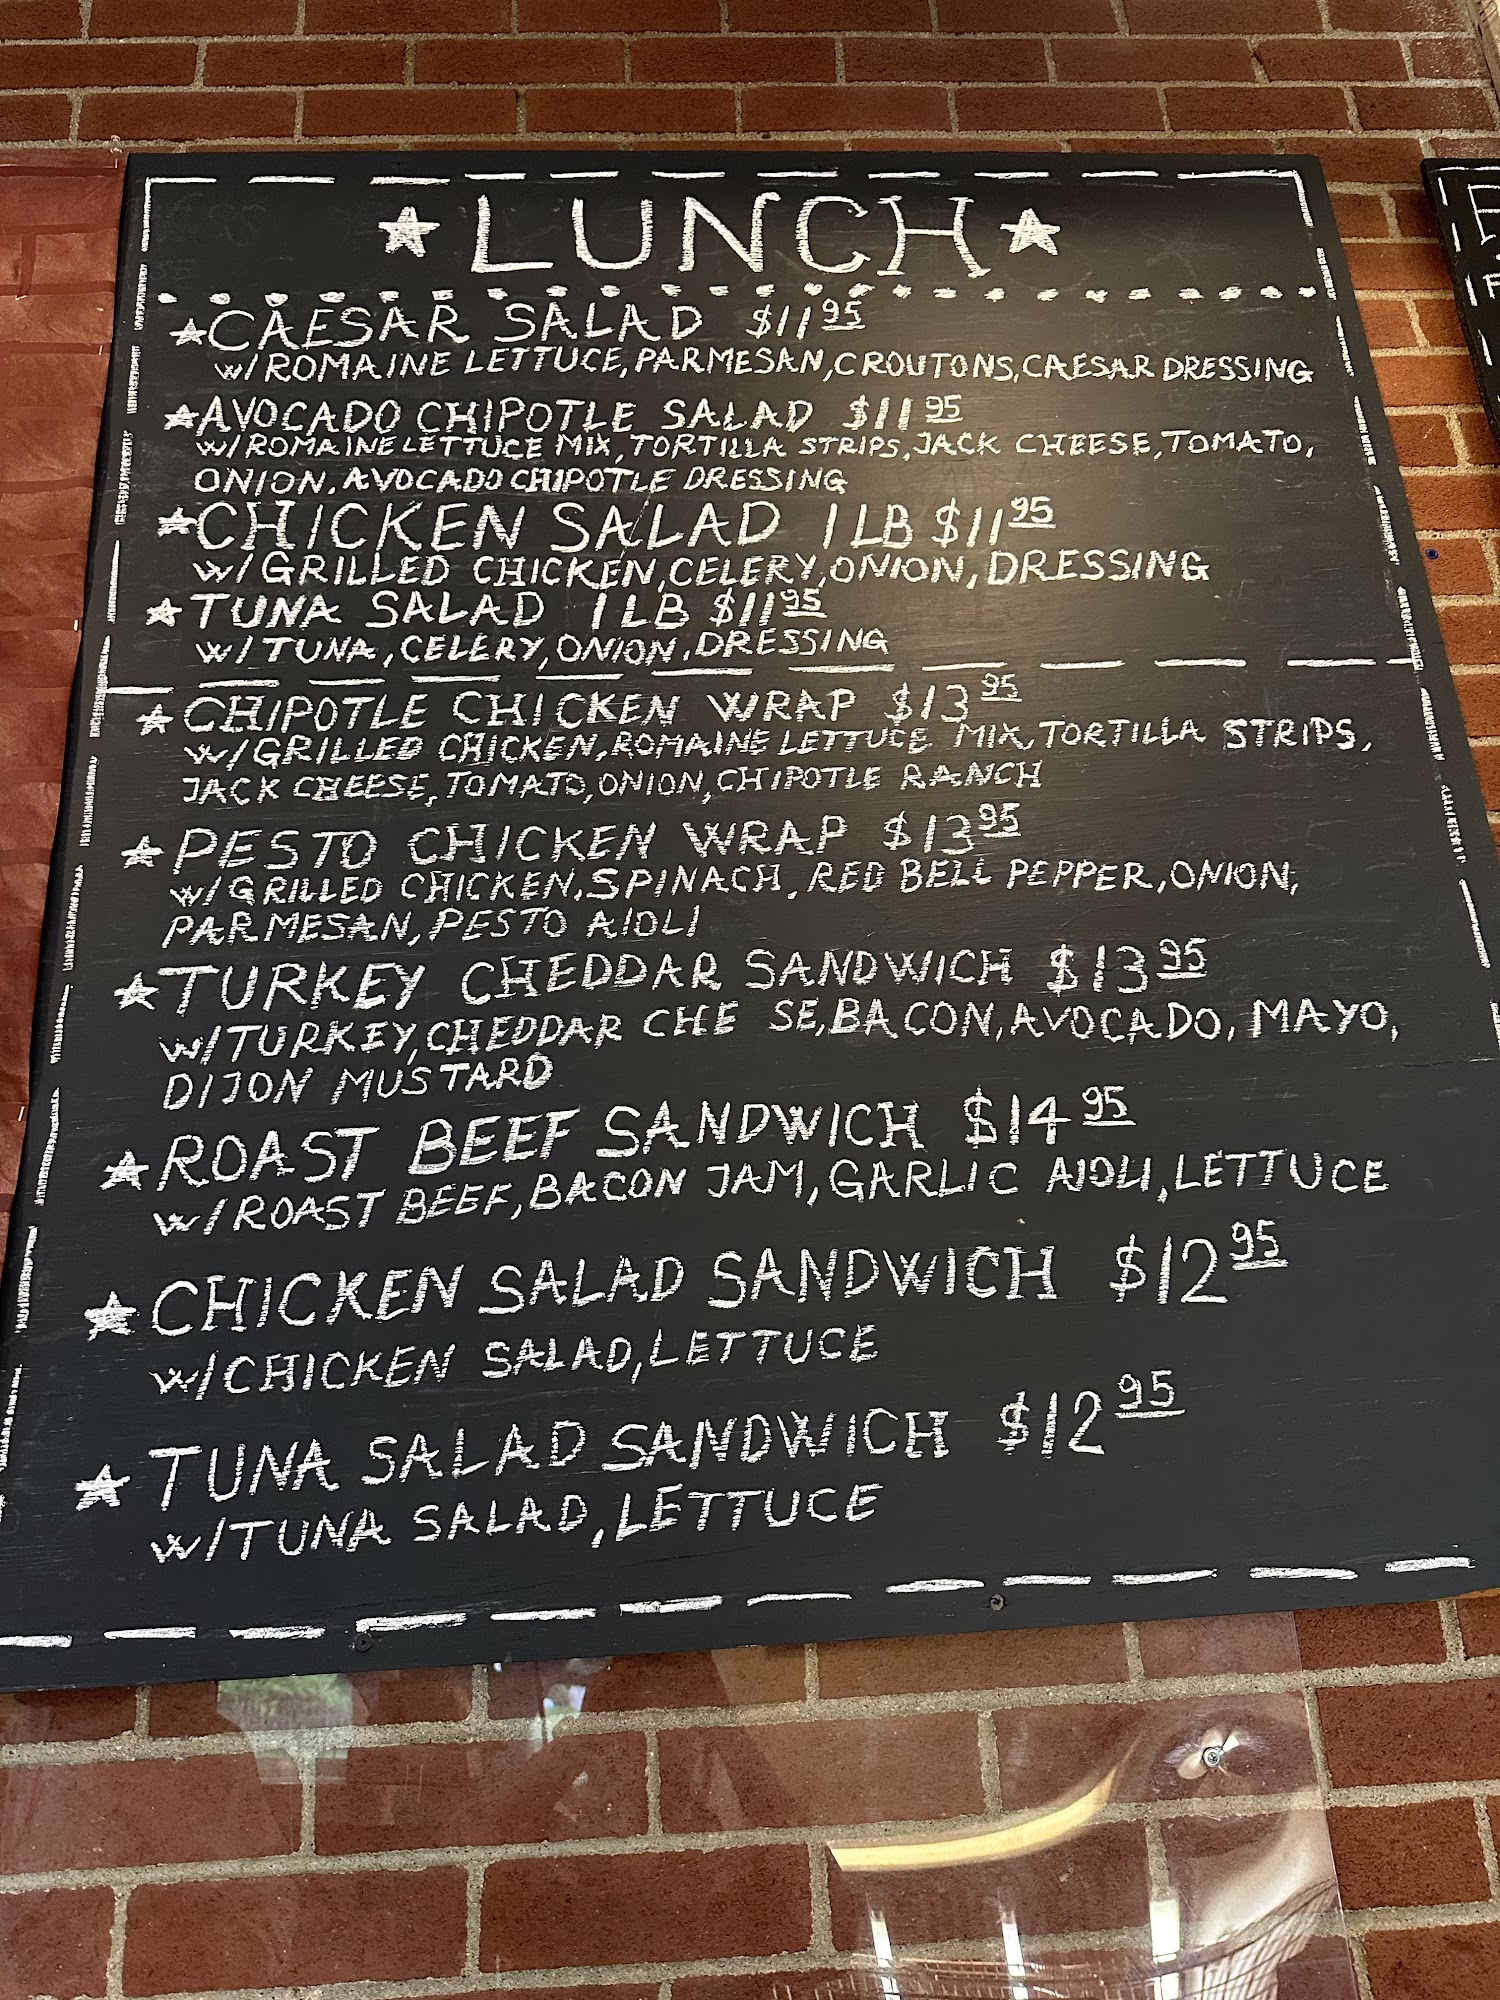 ★ LUNCH ★
★ CAESAR SALAD $11 95
W/ROMAINE LETTUCE, PARMESAN, CROUTONS, CAESAR DRESSING
★ AVOCADO CHIPOTLE SALAD $11 95
W/ROMAINE LETTUCE MIX, TORTILLA STRIPS, JACK CHEESE, TOMATO,
ONION, AVOCADO CHIPOTLE DRESSING
★ CHICKEN SALAD 1 LB $11 95
W/GRILLED CHICKEN, CELERY, ONION, DRESSING
★ TUNA SALAD 1 LB $11 95
W/TUNA, CELERY, ONION, DRESSING
★ CHIPOTLE CHICKEN WRAP $13 95
W/GRILLED CHICKEN, ROMAINE LETTUCE MIX, TORTILLA STRIPS,
JACK CHEESE, TOMATO, ONION, CHIPOTLE RANCH
★ PESTO CHICKEN WRAP $13 95
W/GRILLED CHICKEN, SPINACH, RED BELL PEPPER, ONION,
PARMESAN, PESTO AIOLI
★ TURKEY CHEDDAR SANDWICH $13 95
W/TURKEY, CHEDDAR CHE SE, BACON, AVOCADO, MAYO,
DIJON MUSTARD
★ ROAST BEEF SANDWICH $14 95
W/ROAST BEEF, BACON JAM, GARLIC AIOLI, LETTUCE
★ CHICKEN SALAD SANDWICH $12 95
W/CHICKEN SALAD, LETTUCE
★ TUNA SALAD SANDWICH $12 95
W/TUNA SALAD, LETTUCE